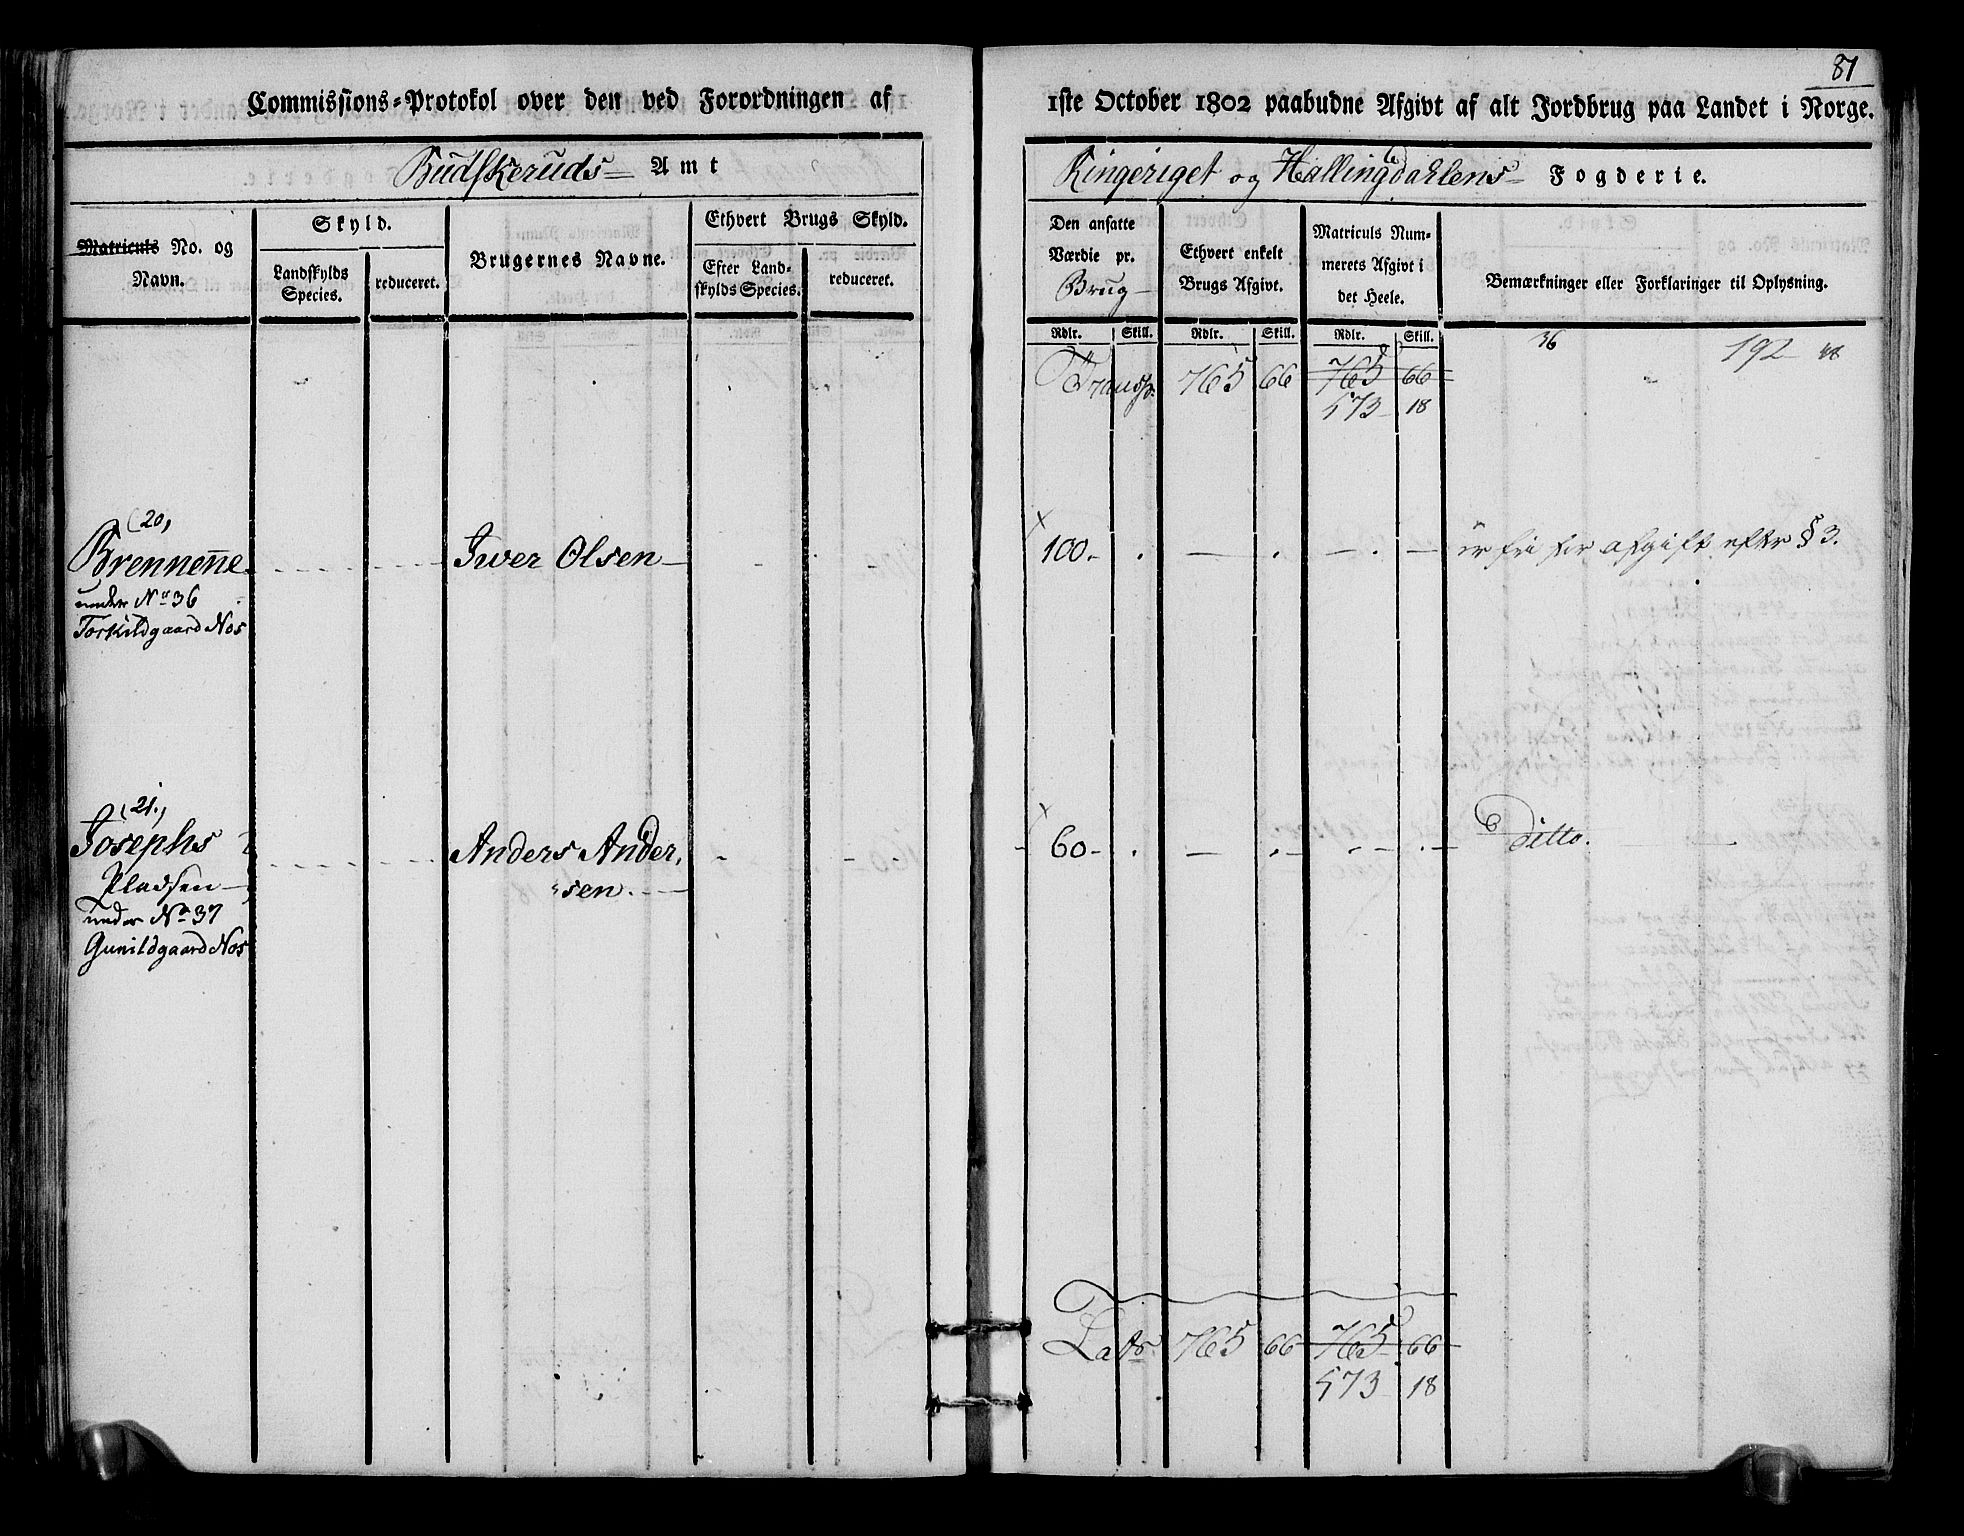 81
Commissions-Protokol over den ved Forordningen af 1ste October 1802 paabudne Afgivt af alt Jordbrug paa Landet i Norge.
Budskeruds Amt
Ringeriget og Hallingdahlens Fogderie.
Matriculs No. og Navn.
Skyld.
Landskylds Species.
reduceret.
Brugernes Navne.
Ethvert Brugs Skyld.
Efter Landskylds Species.
reduceret.
Den ansatte Værdie pr. Brug
Ethvert enkelt Brugs Afgivt.
Matriculs Nummerets Afgivt i det Heele.
Bemærkninger eller Forklaringer til Oplysning.
Rdlr. Skill. Rdlr. Skill. Rdlr. Skill.
36 192 48
Transp. 765 66 765 66
573 18
(20)
Brennene Iwer Olsen 100 er fri for afgift efter § 3.
under No 36
Torkildgaard Nos
(21)
Josephs Anders Ander- 60 Ditto.
Pladsen sen.
under No 37
Gunildgaard Nos
Lat 765 66 765 66
573 18